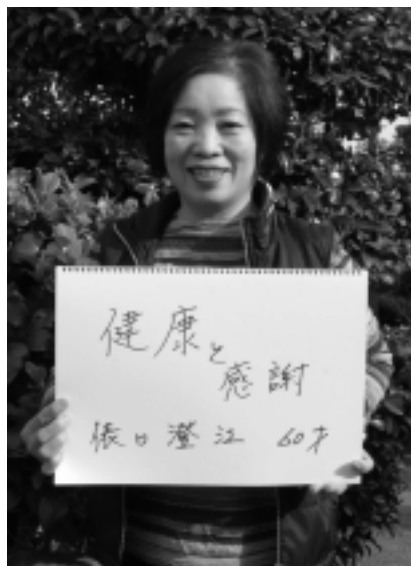 健康と
感謝
澄江 60才